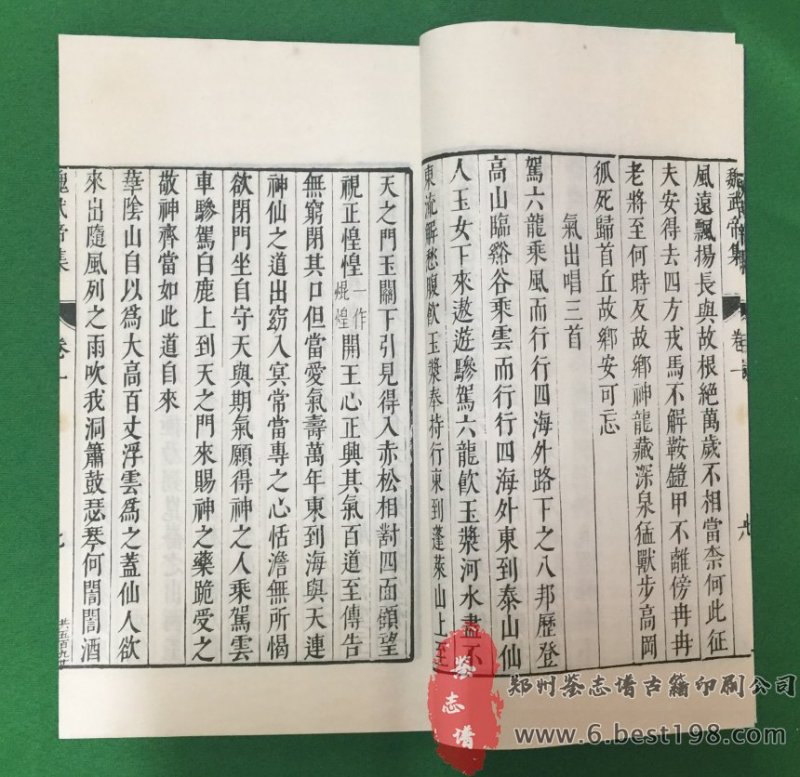 魏武帝集 卷一
風遠飄揚長與故根絕萬歲不相當柰何此征
夫安得去四方戎馬不解鞍鎧甲不離傍冉冉
老將至何時反故鄉神龍藏深泉猛獸步高岡
狐死歸首丘故鄉安可忘
氣出唱三首
駕六龍乘風而行行四海外路下之八邦歷登
高山臨谿谷乘雲而行行四海外東到泰山仙
人玉女下來遨遊驂駕六龍飲玉漿河水盡不
東流解愁腹飲玉漿奉持行東到蓬萊山上至
天之門玉闕下引見得入赤松相對四面顧望
視正惶惶一作焜煌開王心正興其氣百道至傳告
無窮閉其口但當愛氣壽萬年東到海與天連
神仙之道出窈入冥常當專之心恬澹無所愒
欲閉門坐自守天與期氣願得神之人乘駕雲
車驂駕白鹿上到天之門來賜神之藥跪受之
敬神齊當如此道自來
華陰山自以爲大高百丈浮雲爲之蓋仙人欲
來出隨風列之雨吹我洞簫鼓瑟琴何誾誾酒
魏武帝集 卷一
鉴志谱
郑州鉴志谱古籍印刷公司
www.6.best198.com